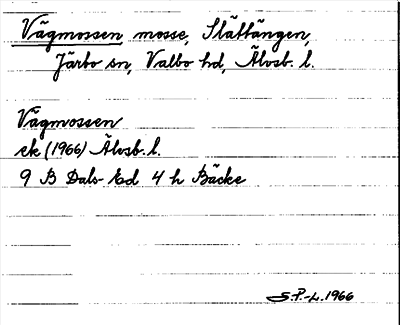 Vägmossen, mosse, Slättängen,
Järbo sn, Valbo hd, Älvsb. l.
Vägmossen
ek (1966) Älvsb. l.
9 B Dals-Ed 4 h Bäcke
S.P.-L. 1966